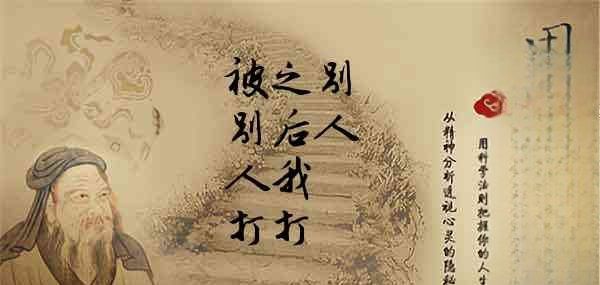 被别人打
之后我打
别人
从精神分析透视心灵的隐秘
用科学法则把握你的人生